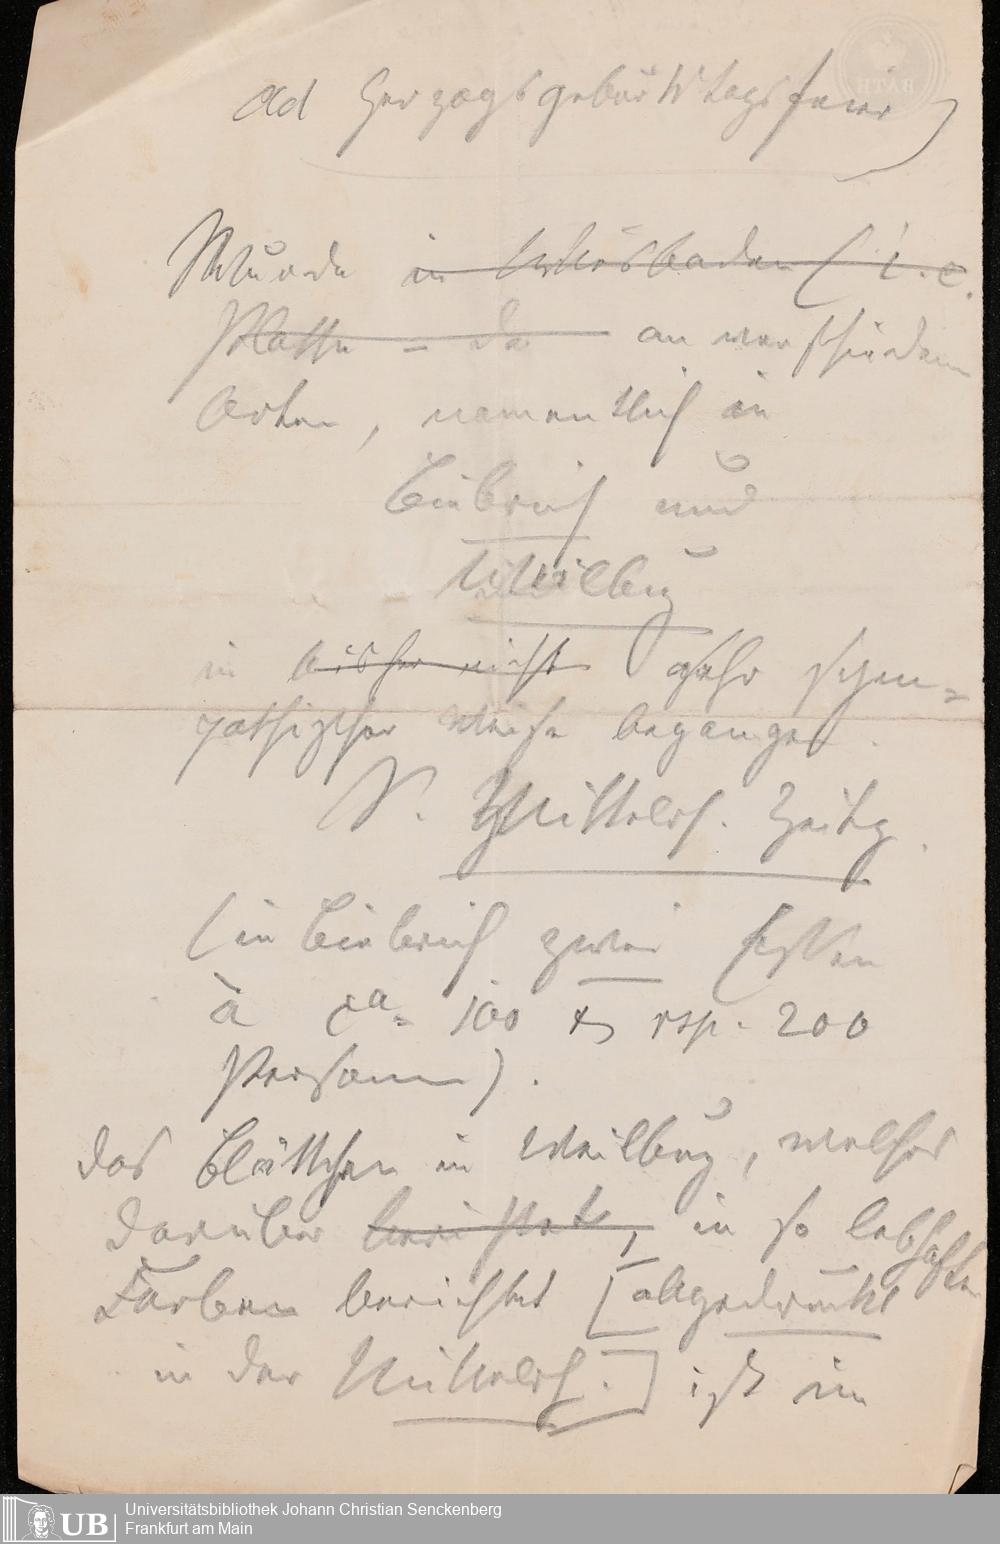 ad Herzogsgeburtstagsfeier
Wurde in Wiesbaden (i. e.
Platte - da an verschiedenen
Orten, namentlich in
Biebrich und
Weilburg
in bisher nicht sehr sym-
pathischer Weise begangen.
S. Mittelrh. Zeitg.
(in Biebrich zwei Essen
à ca. 100 & rsp. 200
Personen).
Das Blättchen in Weilburg, welches
darüber berichtet, in so lebhaften
Farben berichtet [abgedruckt
in der Mittelrh.] ist im
BATH
UB
Universitätsbibliothek Johann Christian Senckenberg
Frankfurt am Main